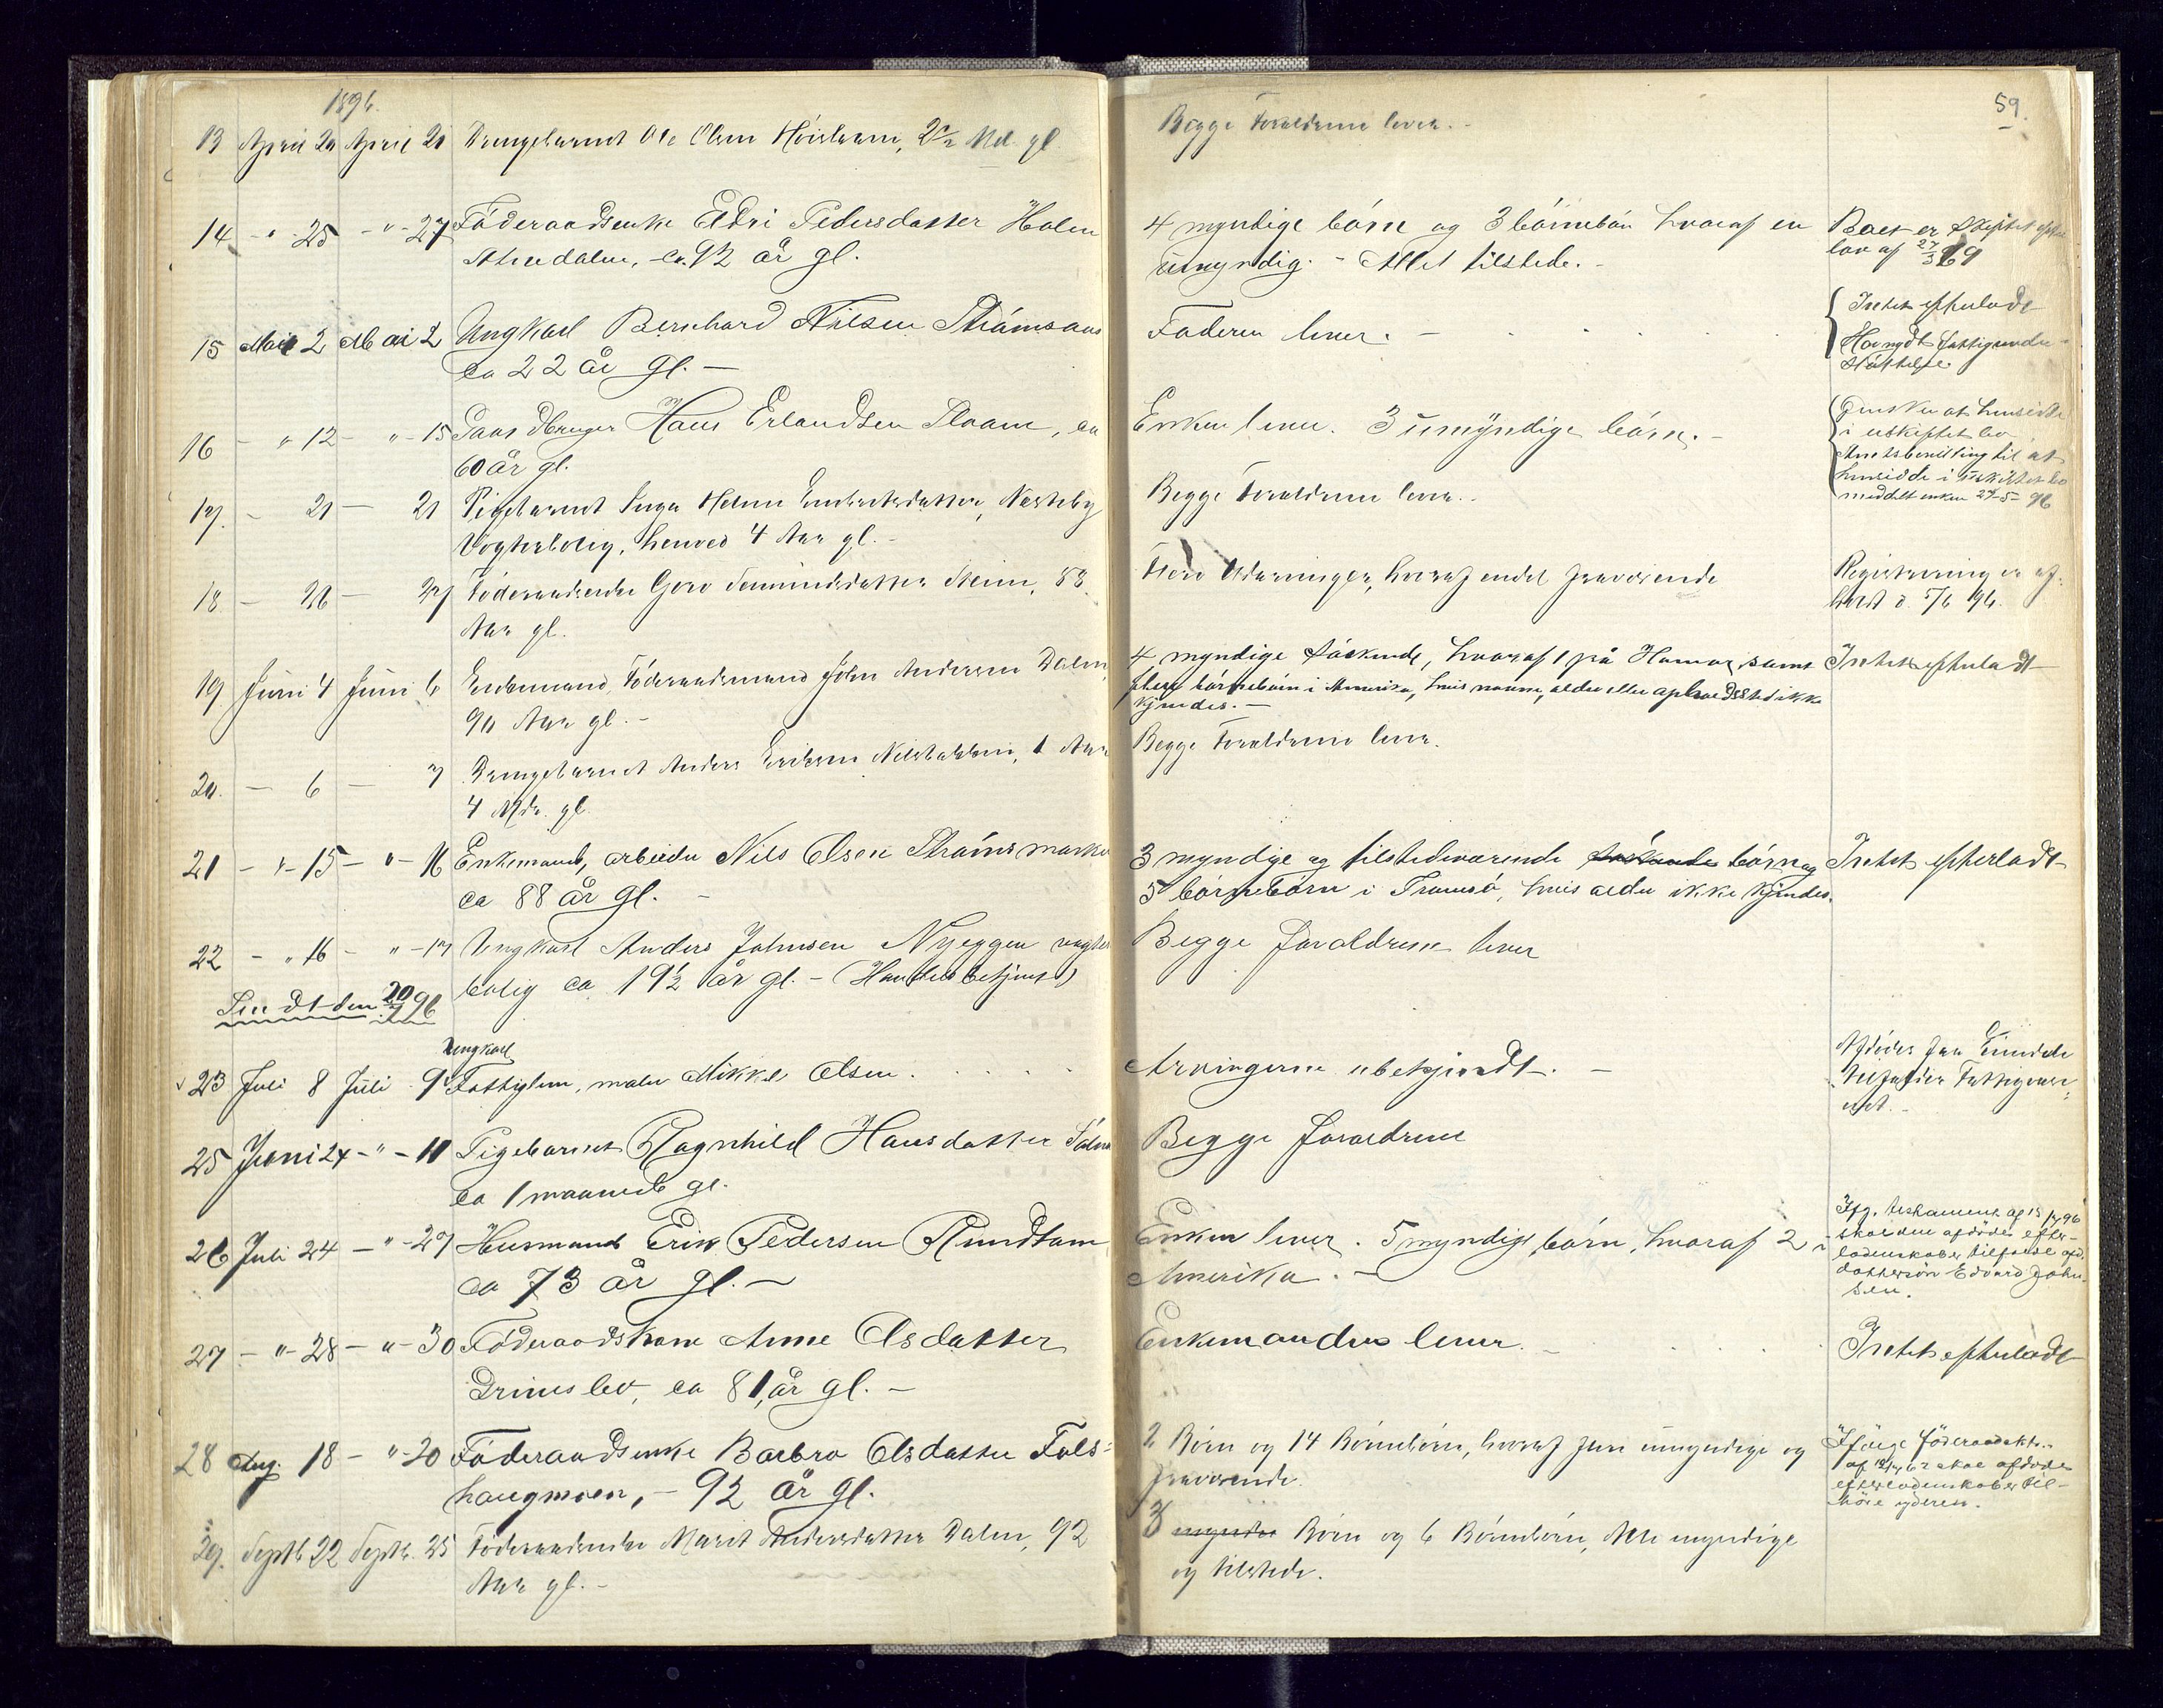 1896.
59.
13 April 20 April 21 Drengebarnet Ole Olsen 2½ Md. gl
Begge Forældrene lever. -
14 - " - 25 - " - 27 Föderaadsenke Eldri Pedersdatter Holen
Atnedalen, - ca. 92 år gl.
4 myndige börn og 3 börnebörn hvoraf en
umyndig. - Alle tilstede. -
Boet er skiftet efter
lov af 27/3 69
15 Mai 2 Mai 2 Ungkarl Bernhard Nilsen Strömsaas
ca 22 år gl. -
Faderen lever. -
Intet efterladt
Har nydt fattigunder-
støttelse
16 - " 12 - " - 15 Gaardbruger Hans Erlandsen Sloam, ca
60 år gl.
Enken lever. 3 umyndige börn. -
Önsker at hensidde
i uskiftet bo
Amtsbevilling til at
hensidde i uskiftet bo
meddelt enken 27-5-96
17. - 21 - 21 Pigebarnet Inga Helene Embretsdatter, Nesteby
Vogterbolig, henved 4 Aar gl. -
Begge Forældrene lever. -
18 - 26 - 27 Föderaadsenke Goro Semmingsdatter Steien, 83
Aar gl.
Flere Udarvinger, hvoraf endel fraværende
Registrering er af-
holdt d. 5/6 96.
19 Juni 4 Juni 6 Enkemand, Föderaadsmand John Andersen Dalen,
90 Aar gl. -
4 myndige söskende, hvoraf 1 på Hamar, samt
flere börnebörn i Amerika, hvis navne, alder eller opholdssted ikke
kjendes. -
Intet efterladt
20. - 6 - 7 Drengebarnet Anders Eriksen Nilsbakken, 1 Aar
4 Mdr. gl.
Begge Forældrene lever.
21 - " - 15 - " - 16 Enkemand, arbeider Nils Olsen Strömsmarken
ca 88 år gl. -
3 myndige og tilstedeværende söskende börn og
5 börnebörn i Tromsö, hvis alder ikke kjendes.
Intet efterladt
22 - " 16 - " - 17 Ungkarl Anders Johnsen Nyeggen vogter
bolig ca 19½ år gl. - (Handelsbetjent)
Begge forældrene lever
Sendt den 20/7 96
Ungkarl
23 Juli 8 Juli 9 Fattiglem, maler Mikkel Olsen.
Arvingerne ubekjendt. -
Afdöde har
Fattigvæse-
net. -
25 Juni 24 - " - 11 Pigebarnet Ragnhild Hansdatter
ca 1 maaned gl.
Begge forældrene
26 Juli 24 - " - 27 Husmand Erik Pedersen Rundtom
ca 73 år gl. -
Enken lever. 5 myndige börn, hvoraf 2 i
Amerika. -
Ifg. testament af
skal den afdödes efter-
ladenskaber tilfalde afd.
dattersön Edvard John-
sen.
27 - " - 28 - " - 30 Föderaadskone Anne Olsdatter
Drivslev, ca 81 år gl. -
Enkemanden lever. -
Intet efterladt
28 Aug. 18 - " - 20 Föderaadsenke Barbro Olsdatter Fåls-
haugmoen, - 92 år gl.
2 Börn og 14 Börnebörn, hvoraf fem umyndige og
fraværende.
Ifölge föderaadskt.
af skal afdödes
efterladenskaber til-
höre yderen.
29. Septb 22 Septb. 25 Föderaadsenke Marit Andersdatter Dalen, 92
Aar gl. -
3 myndige Börn og 6 Börnebörn, Alle myndige
og tilstede.